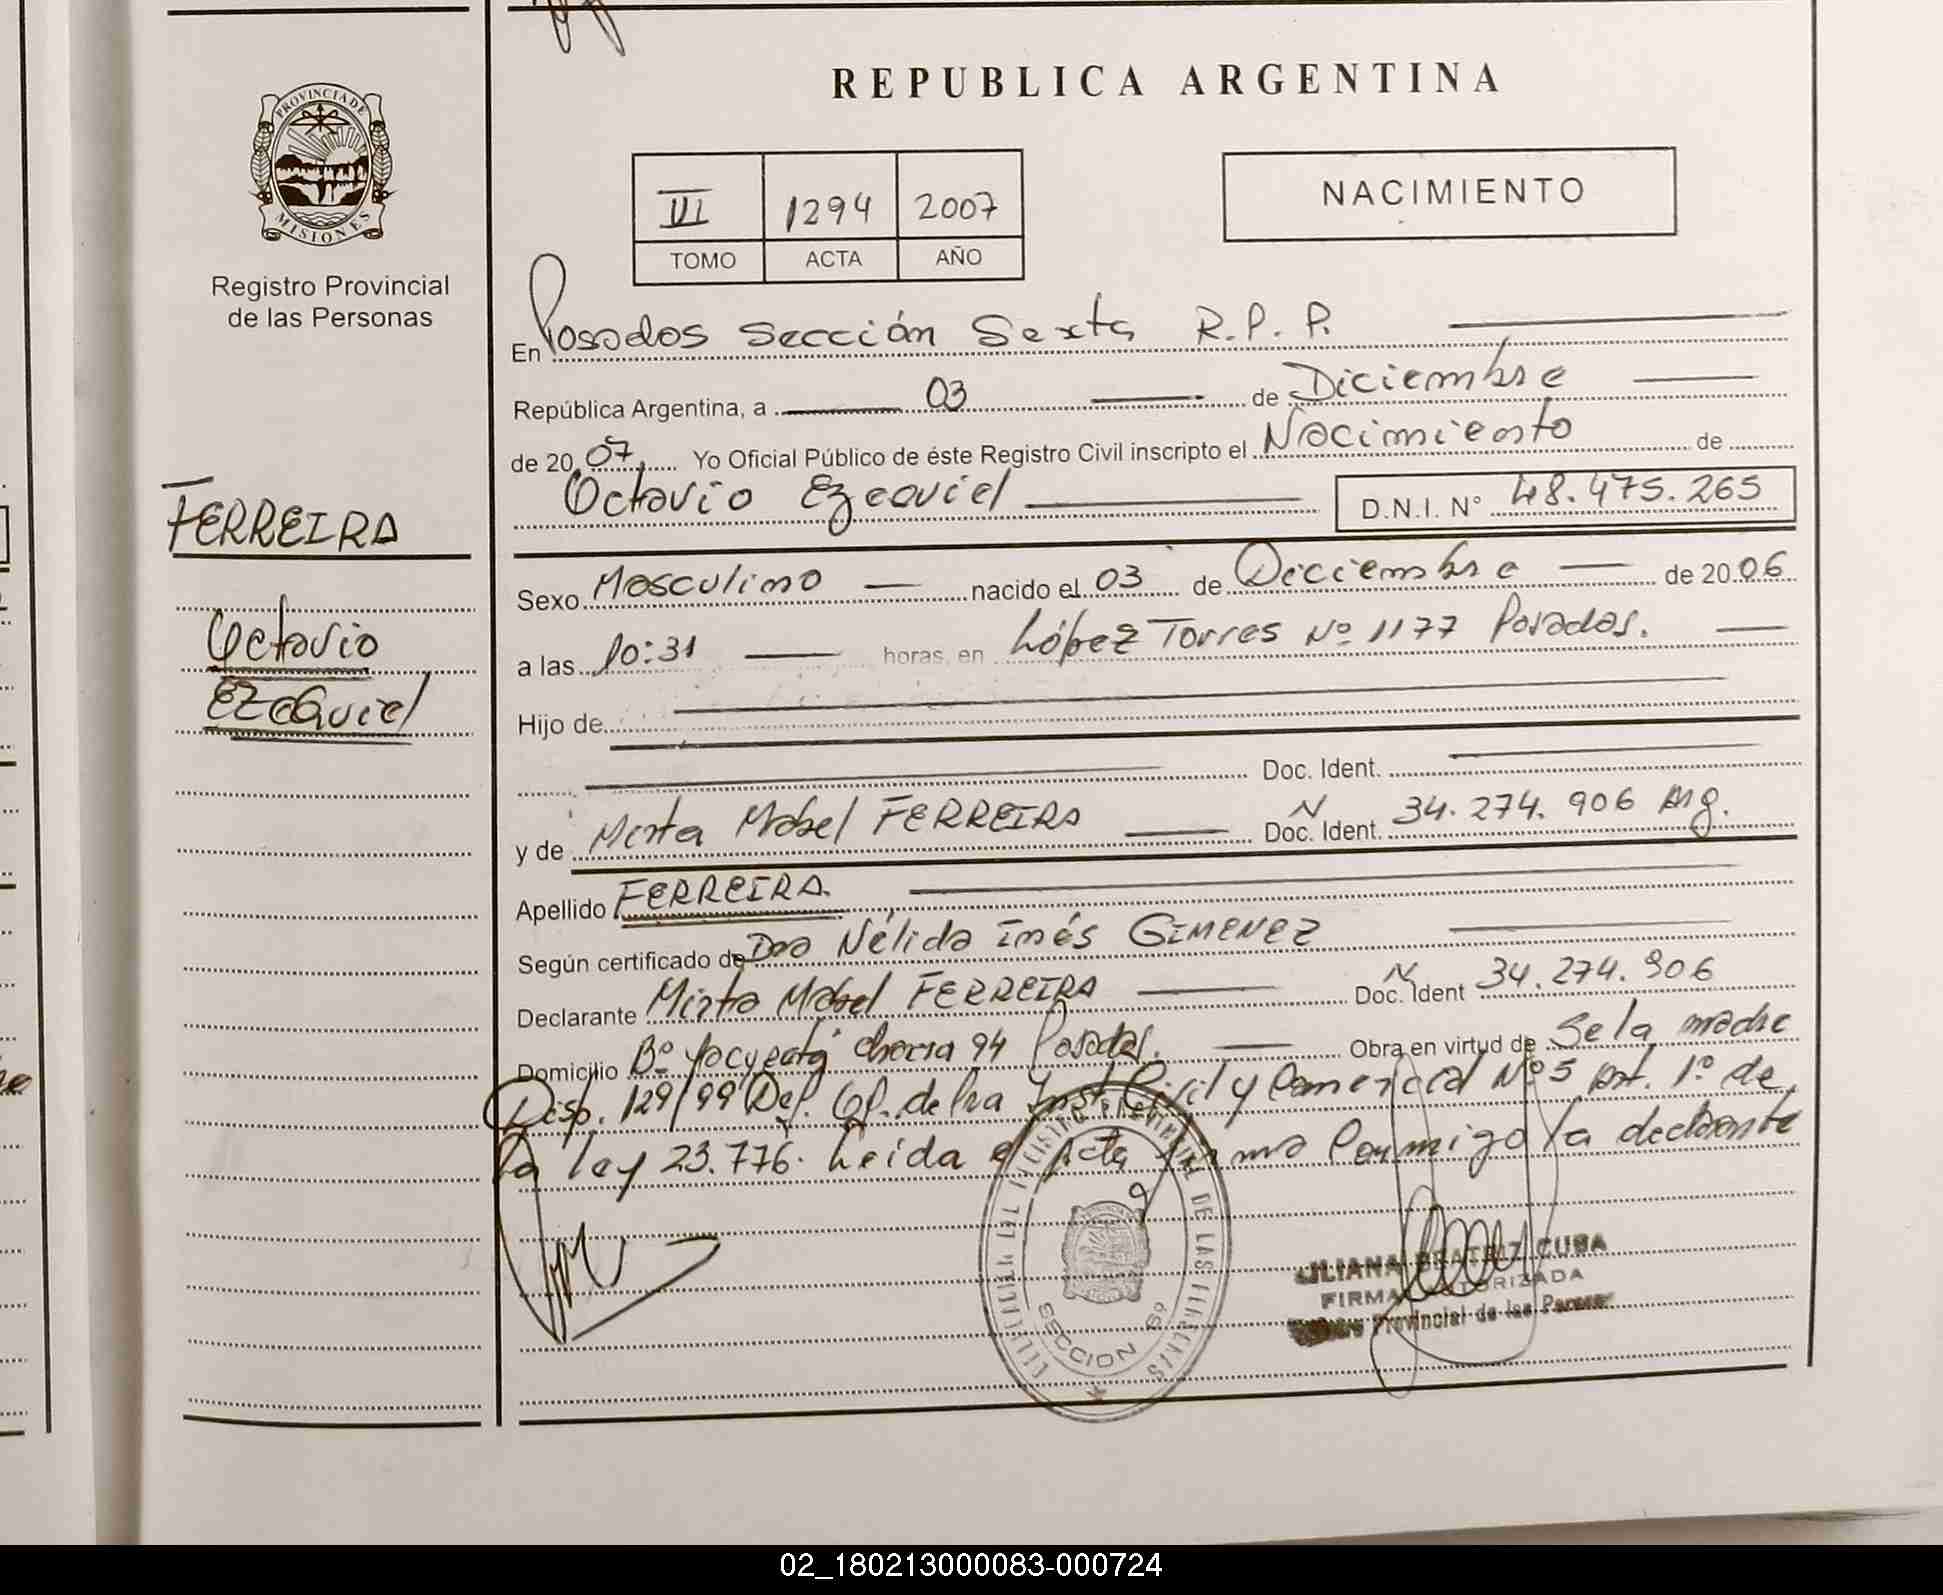 PROVINCIA DE
MISIONES
Registro Provincial
de las Personas
FERREIRA
Octavio
Ezequiel
REPUBLICA ARGENTINA
III 1294 2007
TOMO ACTA AÑO
NACIMIENTO
En Posadas Sección Sexta R.P.P.
República Argentina, a 03 de Diciembre
de 20 07 Yo Oficial Público de éste Registro Civil inscripto el Nacimiento de
Octavio Ezequiel D.N.I. N° 48.475.265
Sexo Masculino nacido el 03 de Diciembre de 20 06
a las 10:31 horas, en López Torres Nº 1177 Posadas.
Hijo de
Doc. Ident.
y de Mirta Mabel FERREIRA Doc. N Ident. 34.274.906 Arg.
Apellido FERREIRA
Según certificado de Dra Nélida Inés GIMENEZ
Declarante Mirta Mabel FERREIRA Doc. N Ident 34.274.906
Domicilio Bº Yacyretá chacra 94 Posadas. Obra en virtud de Se la madre
Disp. 129/99 Def. Of. de 1ra Inst. Civil y Comercial Nº 5 Art. 1º de
la ley 23.776. Leída el Acta firma Conmigo la declarante
SECCION 6º
LILIANA BEATRIZ CUBA
FIRMA AUTORIZADA
Provincial de las Personas
02_180213000083-000724